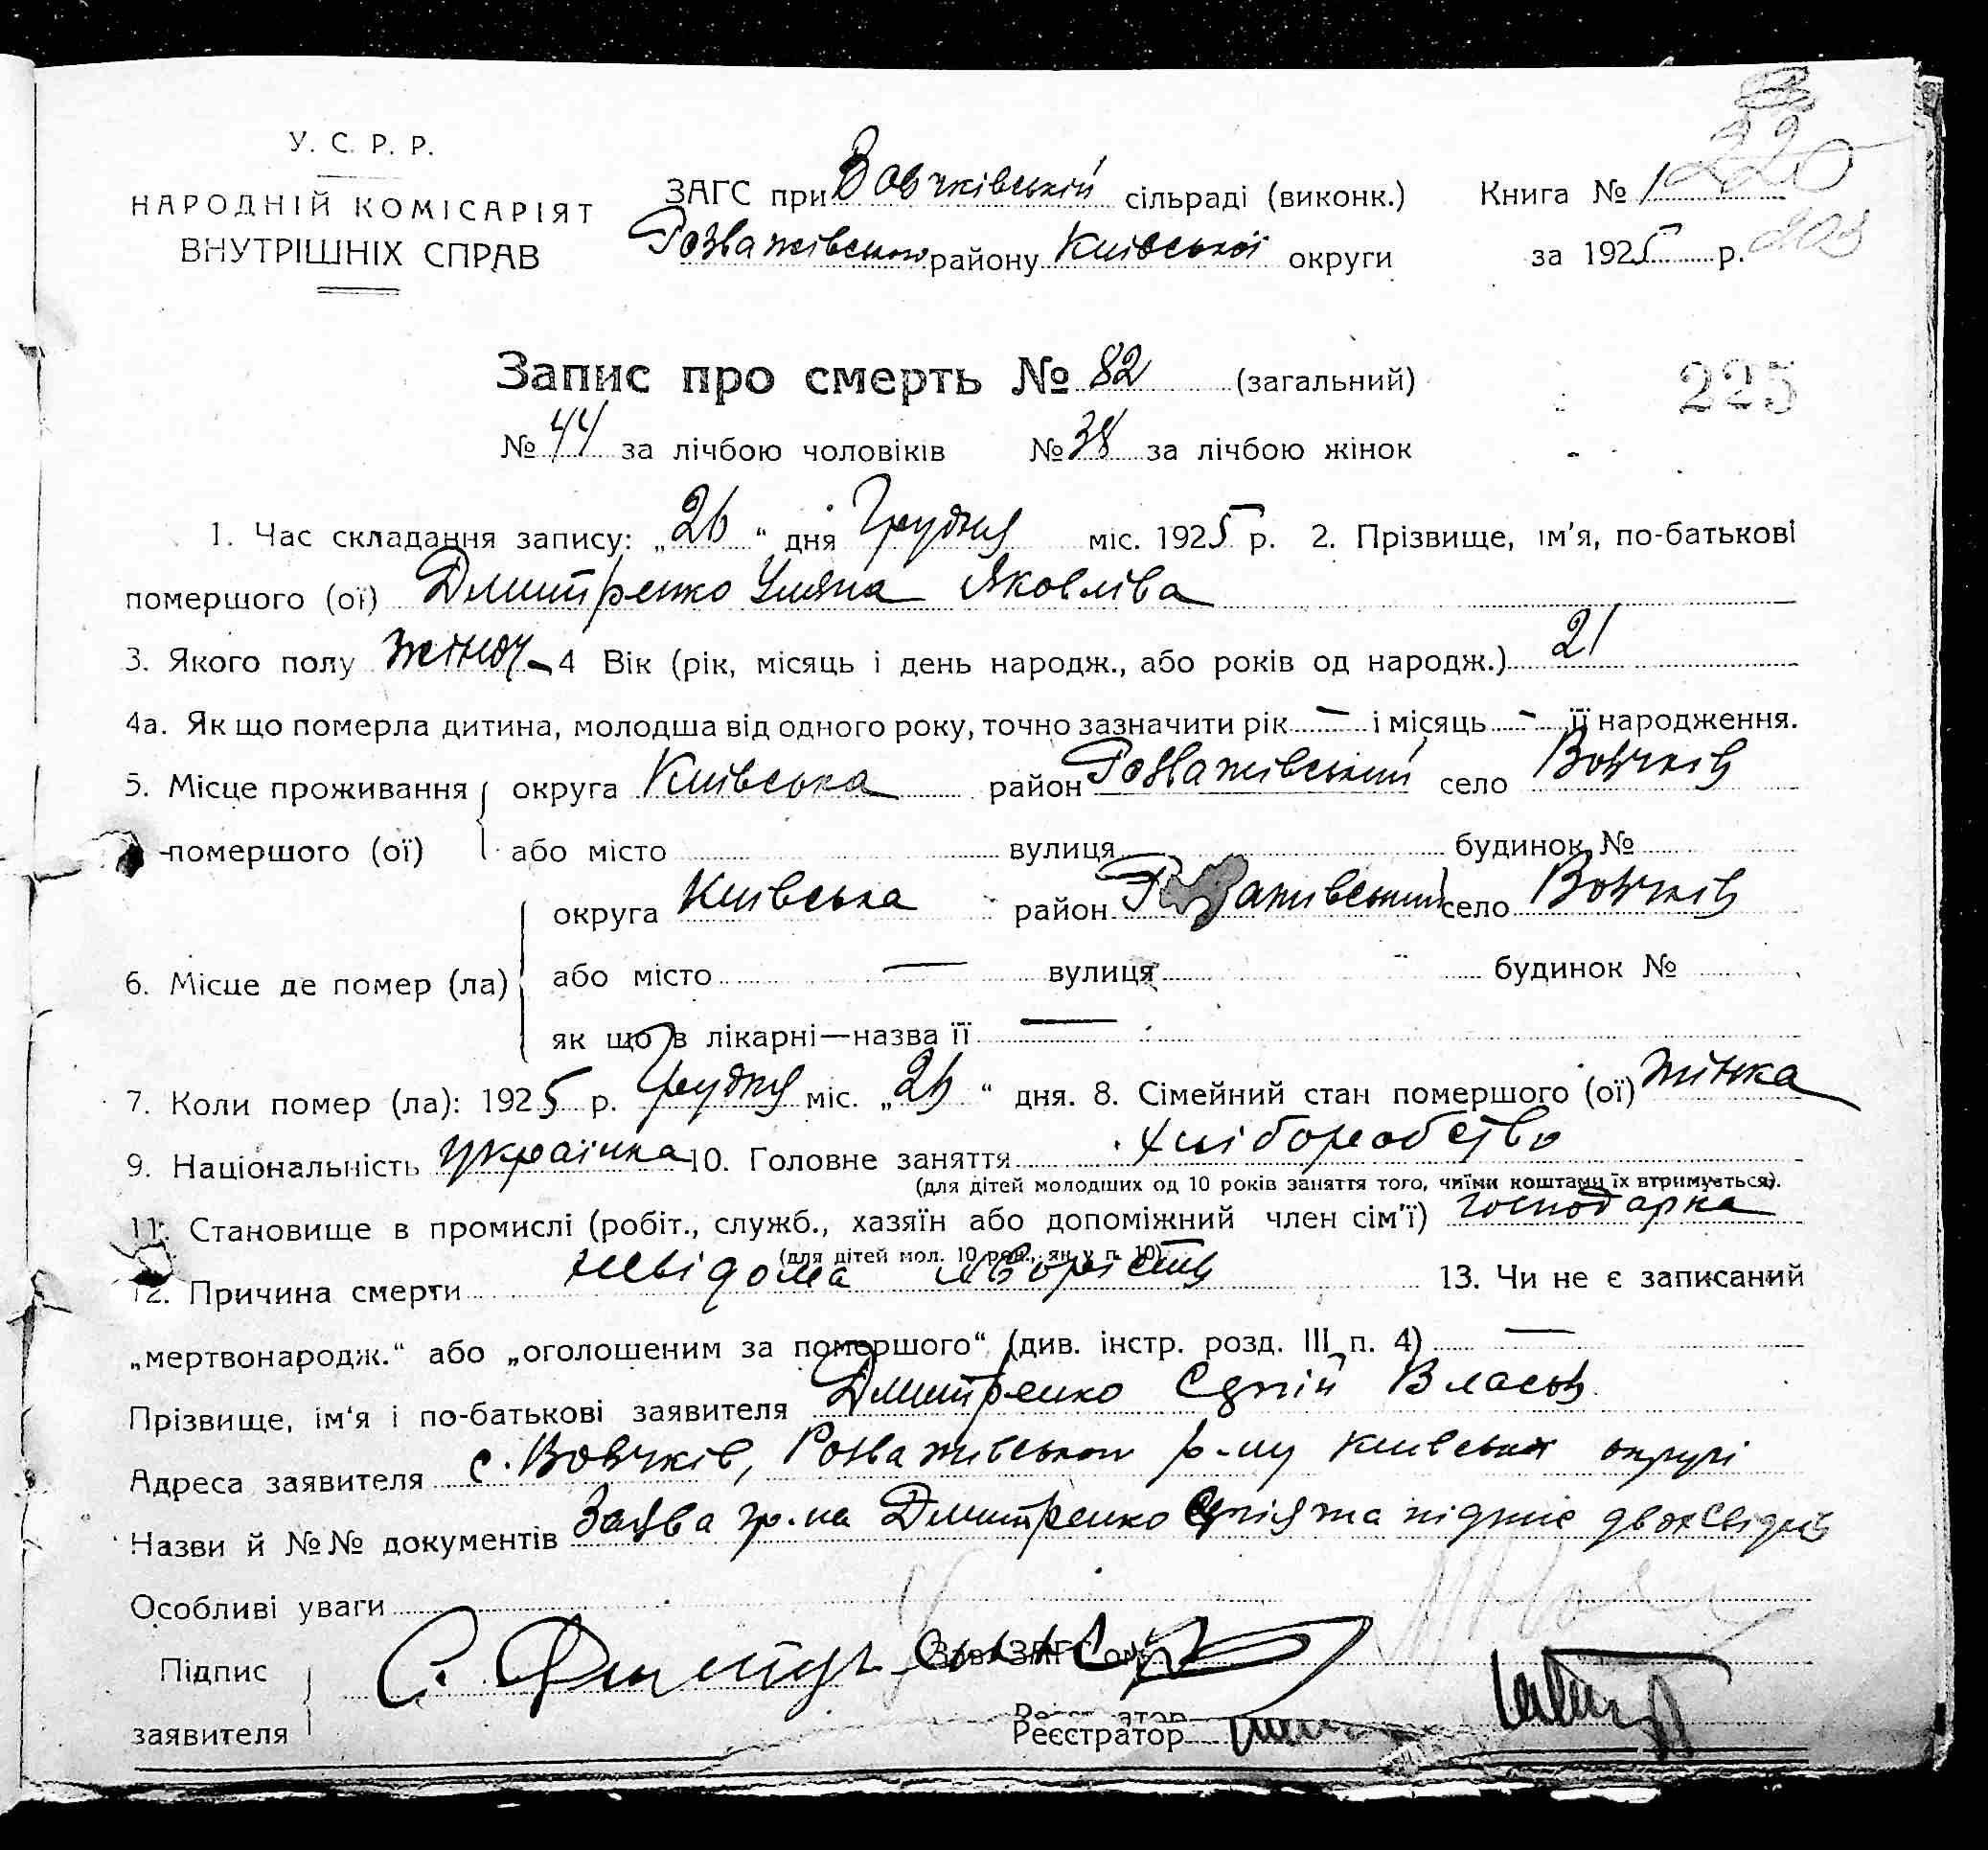 У. С. Р. Р.
НАРОДНІЙ КОМІСАРІЯТ
ВНУТРІШНІХ СПРАВ
ЗАГС при Вовчківській сільраді (виконк.)
Розважівського району Київської округи
Книга № 1
за 1925 р.
220
203
225
Запис про смерть № 82 (загальний)
№ 44 за лічбою чоловіків № 38 за лічбою жінок
1. Час складання запису: „26“ дня Грудня міс. 1925 р. 2. Прізвище, ім'я, по-батькові
помершого (ої) Дмитренко Уляна Яковліва
3. Якого полу жіноч. 4 Вік (рік, місяць і день народж., або років од народж.) 21
4а. Як що померла дитина, молодша від одного року, точно зазначити рік — і місяць - її народження.
5. Місце проживання помершого (ої) округа Київська район Розважівський село Вовчків
або місто вулиця будинок №
6. Місце де помер (ла) округа Київська район Розважівський село Вовчків
або місто — вулиця будинок №
як що в лікарні—назва її —
7. Коли помер (ла): 1925 р. Грудня міс. „26“ дня. 8. Сімейний стан помершого (ої) жінка
9. Національність українка 10. Головне заняття хліборобство
(для дітей молодших од 10 років заняття того, чиїми коштами їх втримується).
11. Становище в промислі (робіт., служб., хазяїн або допоміжний член сім'ї) господарка
(для дітей мол. 10 рок., як у п. 10)
12. Причина смерти невідома 13. Чи не є записаний
„мертвонародж.“ або „оголошеним за помершого“ (див. інстр. розд. III п. 4) —
Прізвище, ім'я і по-батькові заявителя Дмитренко Сергій Власов
Адреса заявителя с. Вовчків, Розважівського р-ну Київської округи
Назви й №№ документів Заява гр-на Дмитренко Сергія та підпис двох свідків
Особливі уваги
Підпис
заявителя
С. Дмитренко
Зав. ЗАГС'ом
Реєстратор